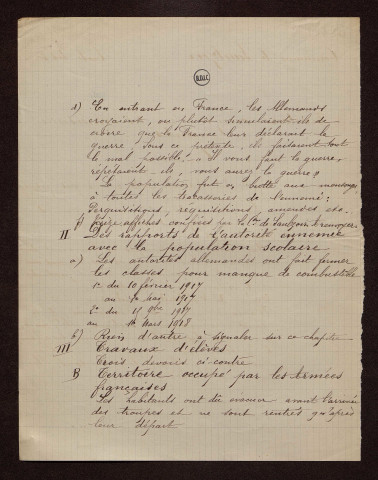 BDIC
d) En entrant en France, les Allemands
croyaient, ou plutôt simulaient de
croire que la France leur déclarait la
guerre. Sous ce prétexte, ils faisaient tout
le mal possible. « Il vous faut la guerre,
répétaient-ils, vous aurez la guerre »
La population fut en butte aux mensonges
à toutes les tracasseries de l'ennemi:
Perquisitions, réquisitions, amendes etc.
affiches confiées par la
II Des rapports de l'autorité ennemie
avec la population scolaire
a) Les autorités allemandes ont fait fermer
les classes pour manque de combustible
1° du 10 février 1917
au mai 1917
2° du 1917
au mars 1918
b) Rien d'autre à signaler sur ce chapitre
III Travaux d'élèves
Trois devoirs ci-contre
B Territoire occupé par les Armées
françaises
Les habitants ont dû évacuer avant l'arrivée
des troupes et ne sont rentrés qu'après
leur départ